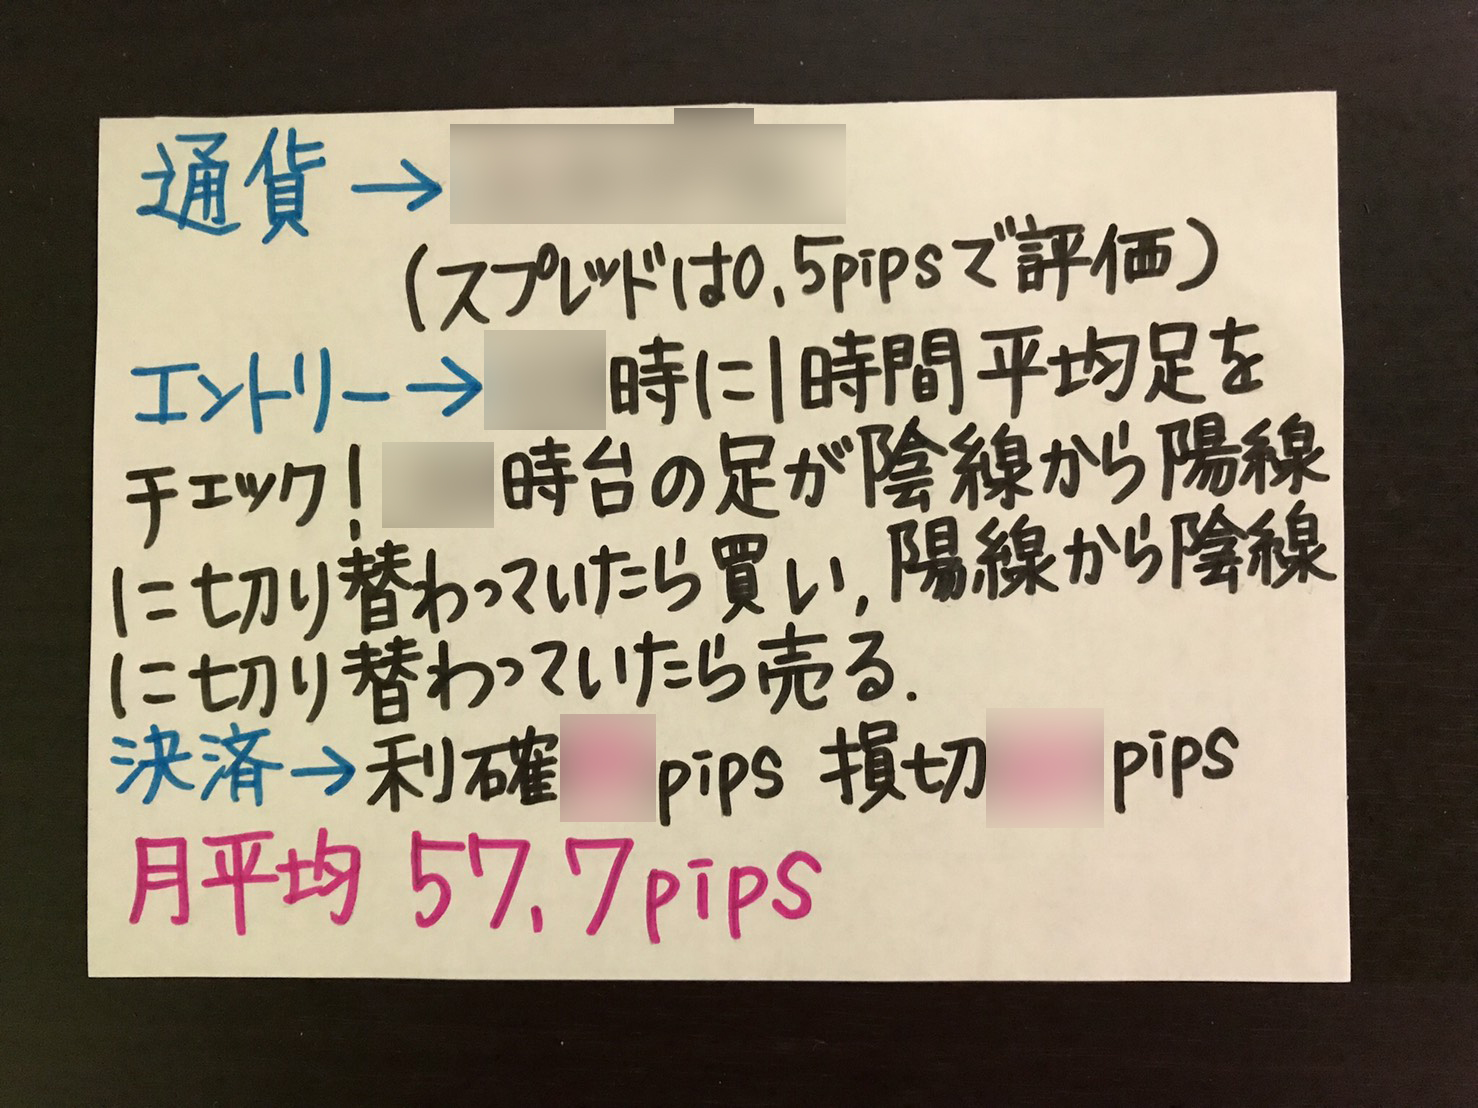 通貨→
(スプレッドは0.5pipsで評価)
エントリー→ 時に1時間平均足を
チェック! 時台の足が陰線から陽線
に切り替わっていたら買い,陽線から陰線
に切り替わっていたら売る.
決済→利確 pips 損切 pips
月平均 57.7pips